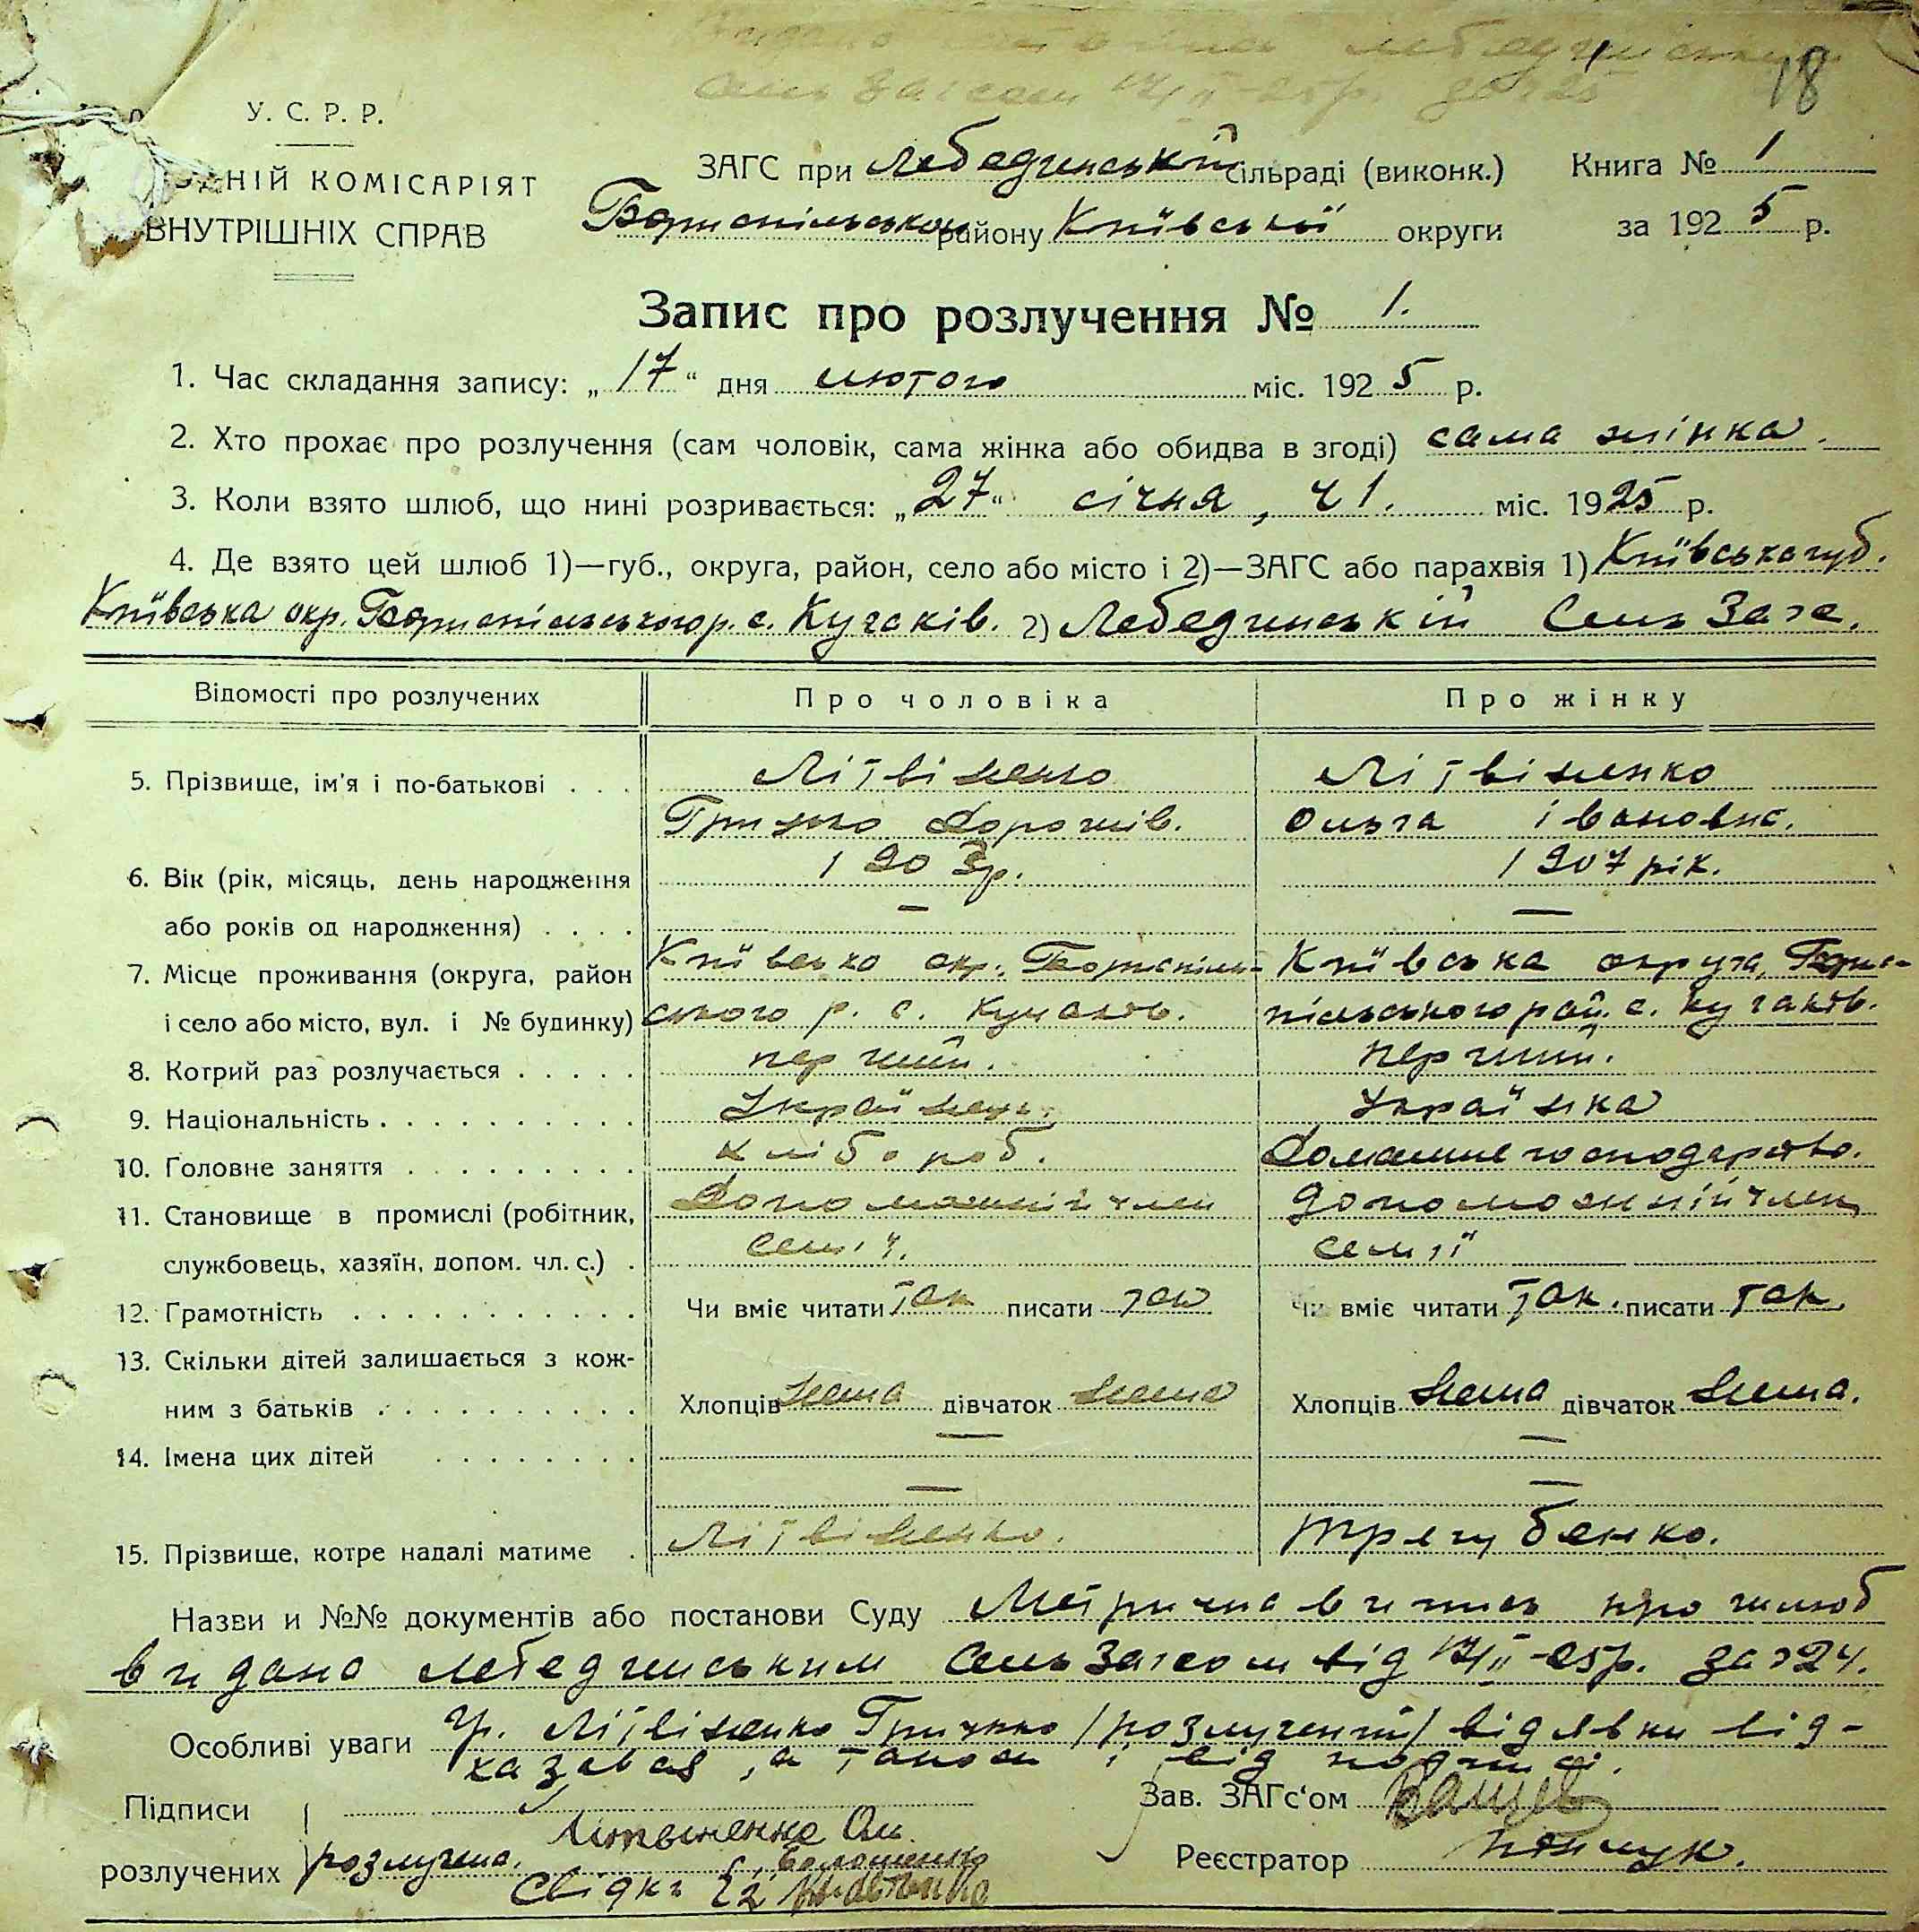 18
У. С. Р. Р.
ЗАГС при Лебединській сільраді (виконк.) Книга № 1
НІЙ КОМІСАРІЯТ
Бориспільського району Київської округи за 1925 р.
ВНУТРІШНІХ СПРАВ
Запис про розлучення № 1.
1. Час складання запису: „17“ дня лютого міс. 1925 р.
2. Хто прохає про розлучення (сам чоловік, сама жінка або обидва в згоді) сама жінка.
3. Коли взято шлюб, що нині розривається: „27“ січня, ч 1. міс. 1925 р.
4. Де взято цей шлюб 1)—губ., округа, район, село або місто і 2)—ЗАГС або парахвія 1) Київська губ.
Київська окр. Бориспільського р. с. Кучаків. 2) Лебединській Сель Загс.
Відомості про розлучених Про чоловіка Про жінку
5. Прізвище, ім'я і по-батькові . . . Літвіненко Літвіненко
Грицько Дорошів. Ольга івановна.
6. Вік (рік, місяць, день народження 1903р. 1907 рік.
або років од народження) . . . . — —
7. Місце проживання (округа, район Київсько окр. Бориспіль- Київська округа, Борис-
і село або місто, вул. і № будинку) ського р. с. Кучаків. пільського рай. с. Кучаків.
8. Котрий раз розлучається . . . . . перший. перший.
9. Національність . . . . . . . . . . . Українець. Українка
10. Головне заняття . . . . . . . . . . хлібороб. Домашне господарство.
11. Становище в промислі (робітник, Допоможній член допоможній член
службовець, хазяїн, допом. чл. с.) . семії. семії
12. Грамотність . . . . . . . . . . . Чи вміє читати так писати так Чи вміє читати так. писати так.
13. Скільки дітей залишається з кож-
ним з батьків . . . . . . . . . . . Хлопців нема дівчаток нема Хлопців нема дівчаток нема.
14. Імена цих дітей . . . . . . . . — —
— —
15. Прізвище, котре надалі матиме . Літвіненко. Трегубенко.
Назви и №№ документів або постанови Суду Метрична випись про шлюб
видано Лебединським Сель Загсом від 17/II-25р. за №24.
Особливі уваги Гр. Літвіненко Грицько /розлучений/ від явки від-
казався, а також і від подписі.
Підписи Зав. ЗАГс'ом
Литвиненко Ол.
розлучених розлучена. Реєстратор
Свідки